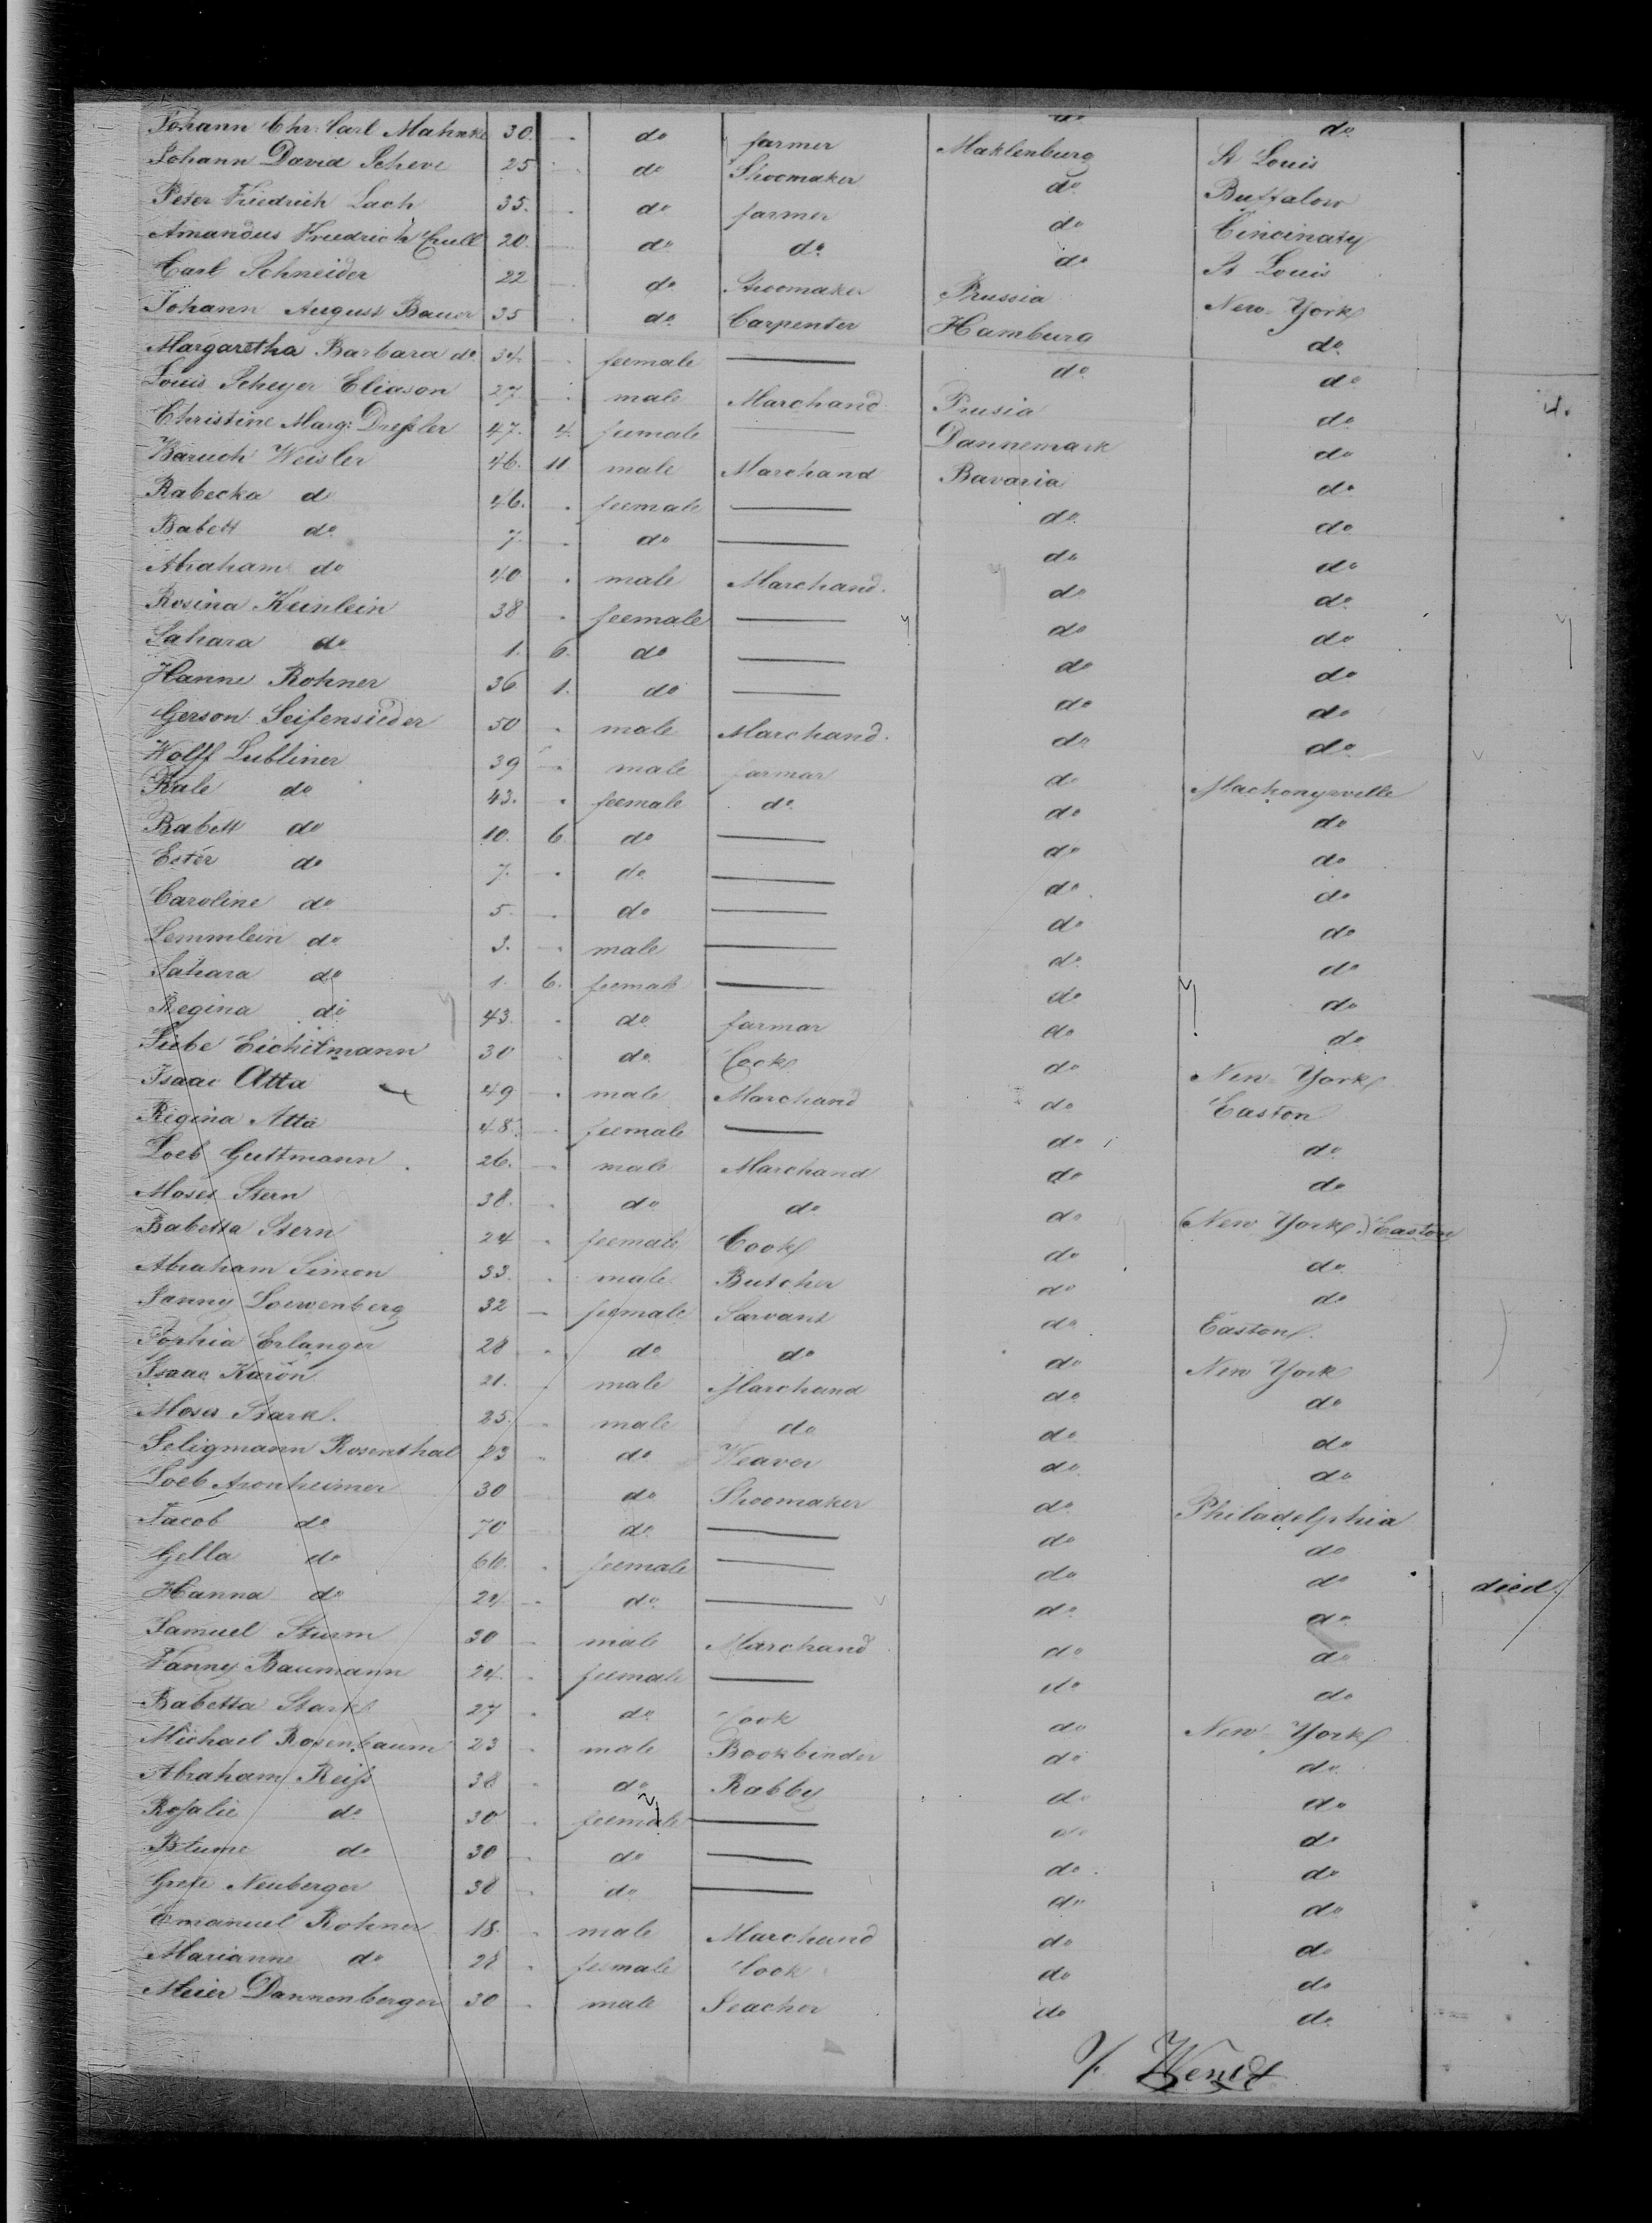 do do
Johann Chr: Carl Mahnke 30. - do farmer Maklenburg St Louis
Johann David Scheve 25 - do Shoomaker do Buffalow
Peter Friedrich Lach 35. - do farmer do Cincinaty
Amandus Friedrich Crull 20. - do do do St Louis
Carl Schneider 22 - do Shoomaker Prussia New-York
Johann August Bauer 35 - do Carpenter Hamburg do
Margaretha Barbara do 34. - feemale — do do
Louis Scheyer Eliason 27 - male Marchand Prusia do 4.
Christine Marg: Dreßler 47. 4. feemale — Dannemark do
Baruch Weisler 46. 11 male Marchand Bavaria do
Rabecka d 46. - feemale — do do
Babett do 7. - do — do do
Abraham do 40 - male Marchand. do do
Rosina Keinlein 38 - feemale — do do
Sahara do 1. 6. do — do do
Hanne Rohner 36 1. do — do do
Gerson Seifensieder 50 - male Marchand. do do
Wolff Lubliner 39 - male farmar do Machonysville
Kale do 43. - feemale do do do
Babett do 10. 6 do — do do
Ester do 7. - do — do do
Caroline do 5. - do — do do
Lemmlein do 3. - male — do do
Sahara do 1. 6. feemale — do do
Regina do 43. - do farmar do do
Liebe Eichitmann 30 - do Cock do New-York
Isaac Atta 49 - male Marchand do Easton
Regina Atta 48. - feemale — do do
Loeb Guttmann 26. - male Marchand do do
Moses Stern 38. - do do do (New York.) Easton
Babetta Stern 24 - feemale Cook do do
Abraham Simon 33. - male Butcher do do
Fanny Loewenberg 32 - feemale Sarvant do Easton
Sophia Erlanger 28 - do do do New York
Isaac Karon 21. - male Marchand do do
Moses Stark 25. - male do do do
Seligmann Rosenthal 23 - do Weaver do do
Loeb Aronheimer 30 - do Shoomaker do Philadelphia
Jacob do 70 - do — do do
Gella do 66. - feemale — do do died.
Hanna do 24. - do — do do
Samuel Sturm 30 - male Marchand do do
Fanny Baumann 24. - feemale — do do
Babetta Stark 27 - do Cook do New-York
Michael Rosenbaum 23 - male Bookbinder do do
Abraham Reiß 38 - do Rabby do do
Rosalie do 30 - feemale — do do
Blume do 30 - do — do do
Grete Neuberger 38 - do — do do
Emanuel Rohner 18. - male Marchand do do
Marianne do 28 - feemale Cook do do
Meier Dannenberger 30 - male Teacher do do
Wendt